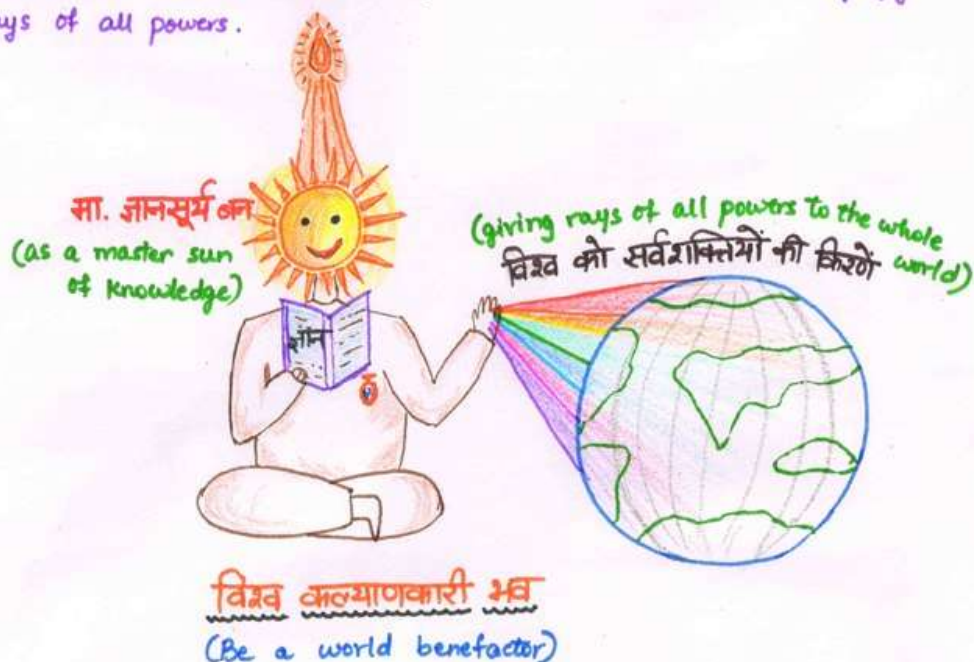 ays of all powers.
मा. ज्ञानसूर्य बन
(as a master sun
of knowledge)
(giving rays of all powers to the whole
विश्व को सर्वशक्तियों की किरणें world)
ज्ञान
विश्व कल्याणकारी भव
(Be a world benefactor)